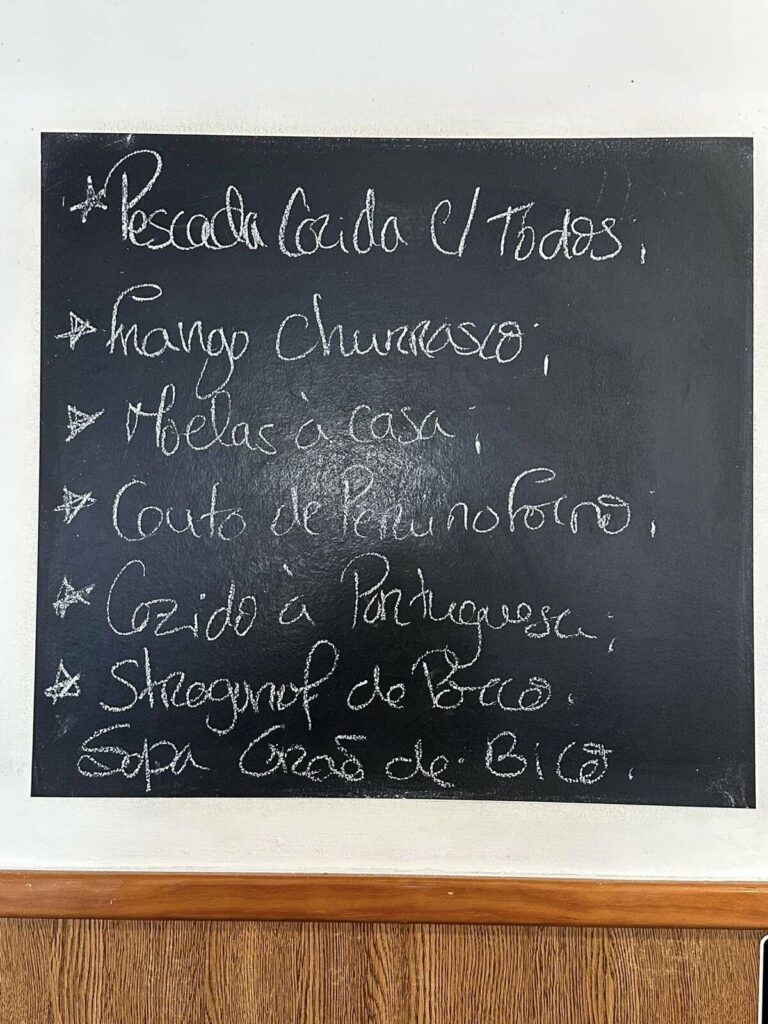 Pescada Cozida c/ Todos;
Frango churrasco;
Moelas à casa;
Couto de Peru no Forno;
Cozido à Portuguesa;
Stragonof de Porco.
Sopa Grão de Bico.